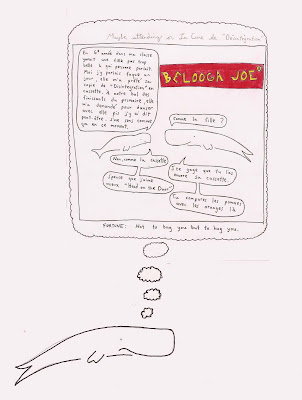 La Cure de "Désintégration"
En 6e année dans ma classe
yavait une fille pas trop
belle à qui personne parlait.
Moi j'y parlais un
jour, elle m'a prêté sa
copie de "Disintegration" en
cassette. À notre bal des
finissants du primaire, elle
m'a demandé pour danser
avec elle pis j'y ai dit
peut-être. J'me sens comme
ça en ce moment.
BÉLOOGA JOE
Comme la fille ?
Non, comme la cassette.
J'te gage que tu l'as
encore la cassette.
J'pense que j'aime
mieux "Head on the Door"
Tu compares les pommes
avec les oranges là
FORTUNE: Not to bug you but to hug you.